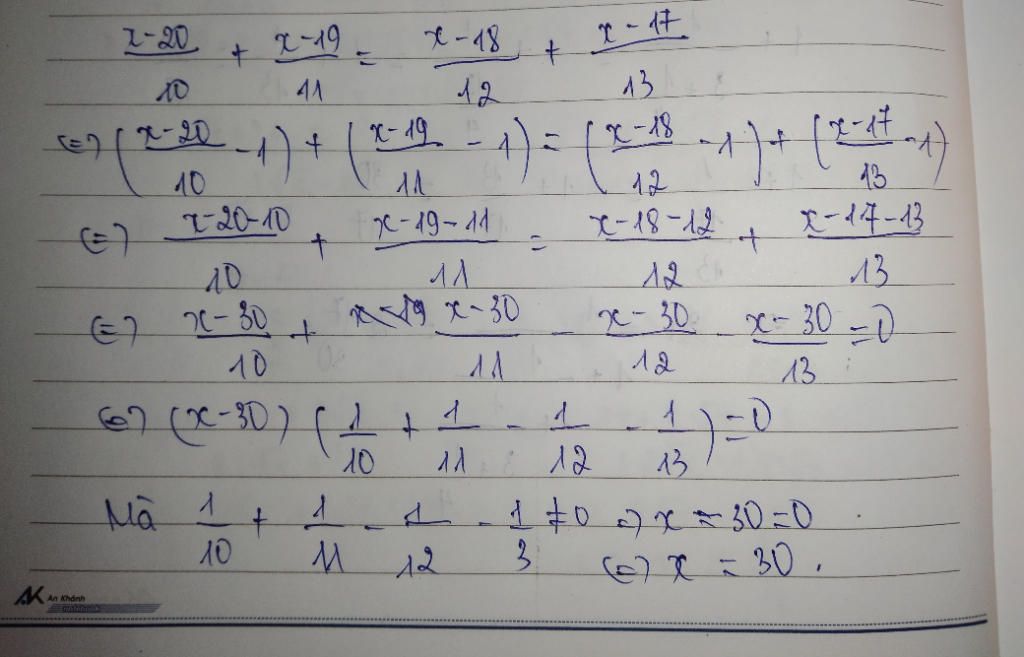 x-20/10 + x-19/11 = x-18/12 + x-17/13
(=) (x-20/10 - 1) + (x-19/11 - 1) = (x-18/12 - 1) + (x-17/13 - 1)
(=) x-20-10/10 + x-19-11/11 = x-18-12/12 + x-17-13/13
(=) x-30/10 + x-30/11 - x-30/12 - x-30/13 = 0
(=) (x-30) (1/10 + 1/11 - 1/12 - 1/13) = 0
Mà 1/10 + 1/11 - 1/12 - 1/3 ≠ 0 => x - 30 = 0
(=) x = 30.
AK An Khánh